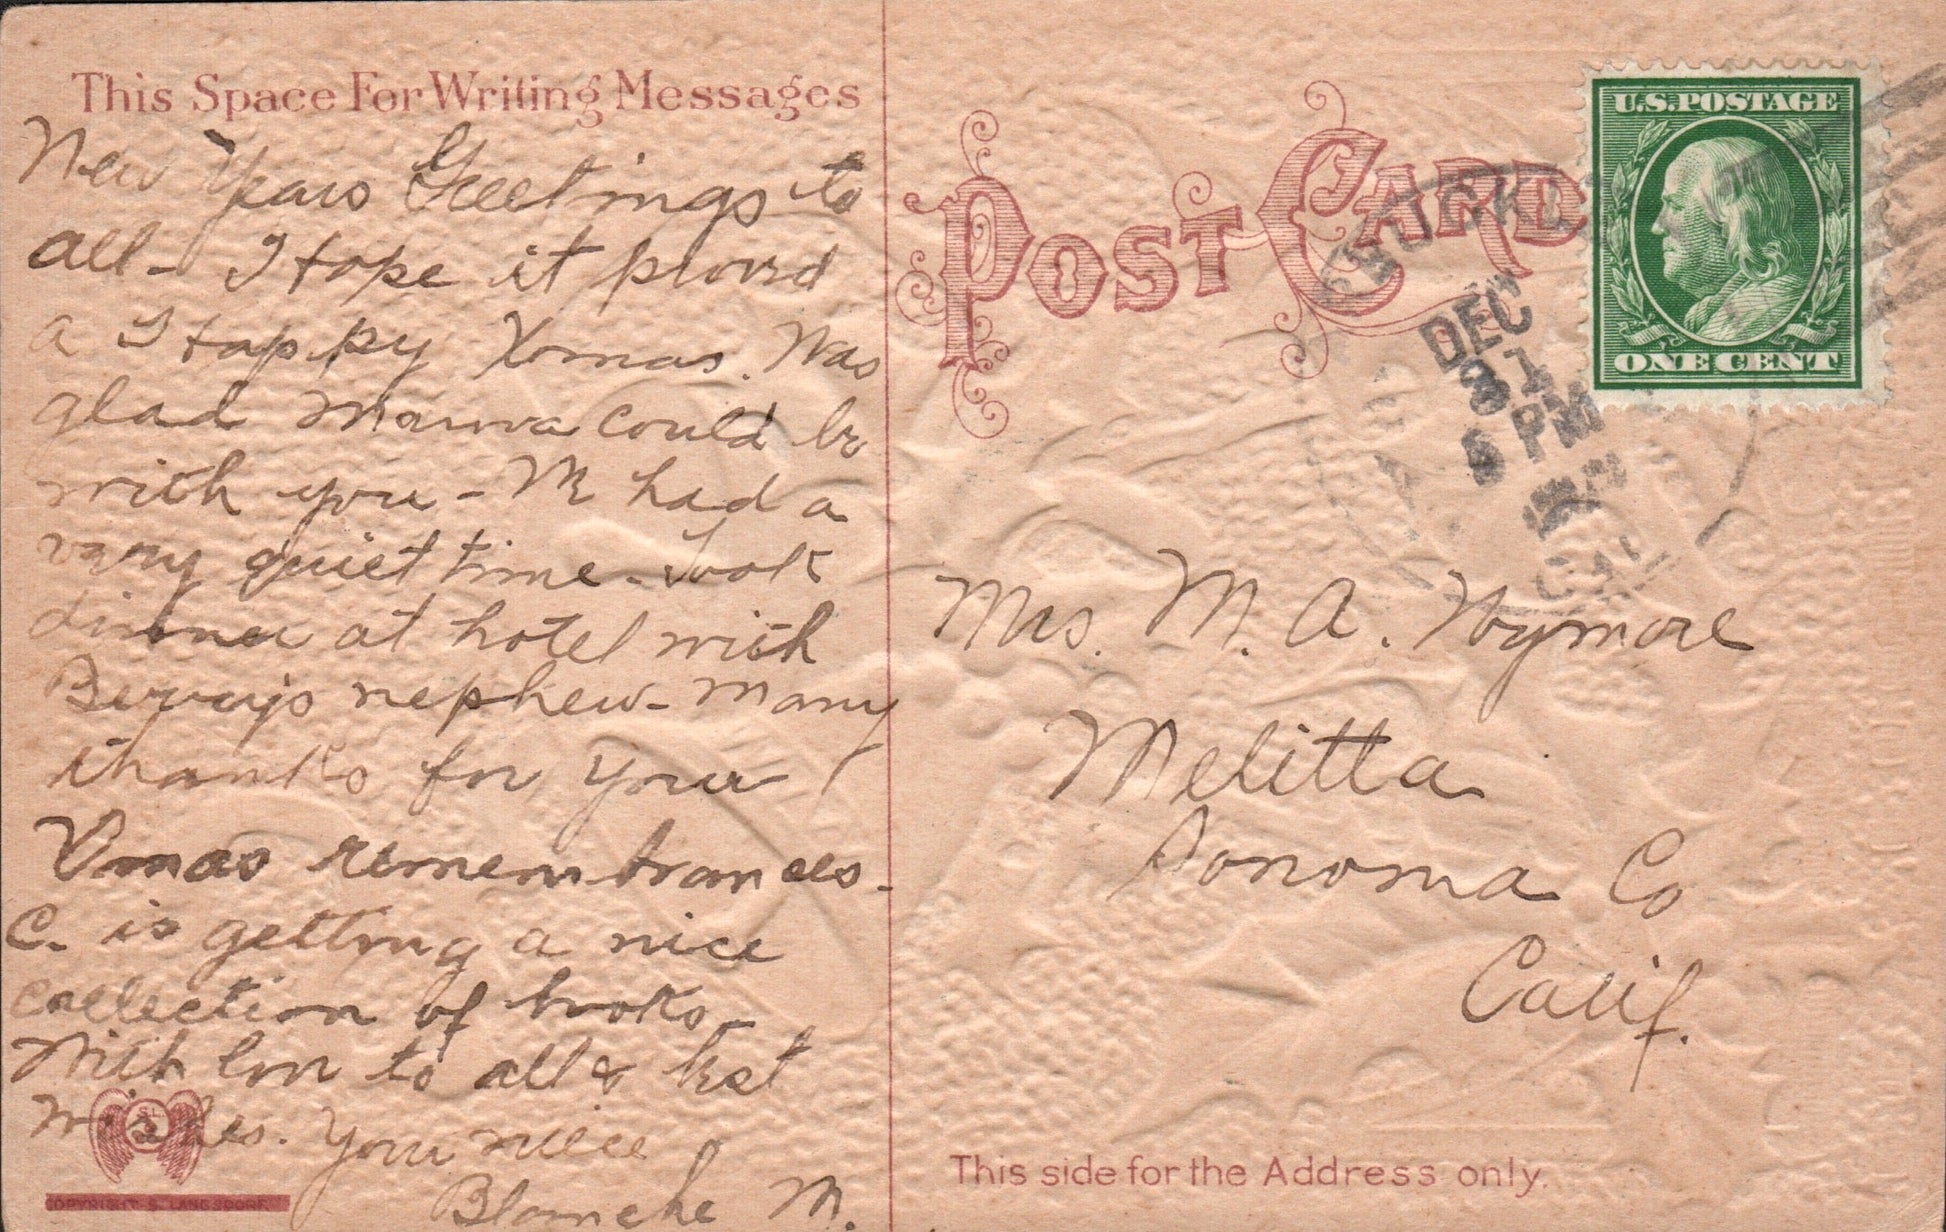 This Space For Writing Messages
New Years Greetings to
all - I hope it proved
a Happy Xmas. Was
glad Mama could be
with you - We had a
very quiet time - Took
dinner at hotel with
nephew - Many
thanks for your
Xmas remembrances -
C. is getting a nice
collection of books -
With love to all & best
wishes. Your niece
Blanche M.
COPYRIGHT S. LANGSDORF
POST CARD
U.S. POSTAGE
ONE CENT
TRUCKEE
DEC
31
PM
CAL
Mrs. M. A. Wymore
Melitta
Sonoma Co
Calif.
This side for the Address only.